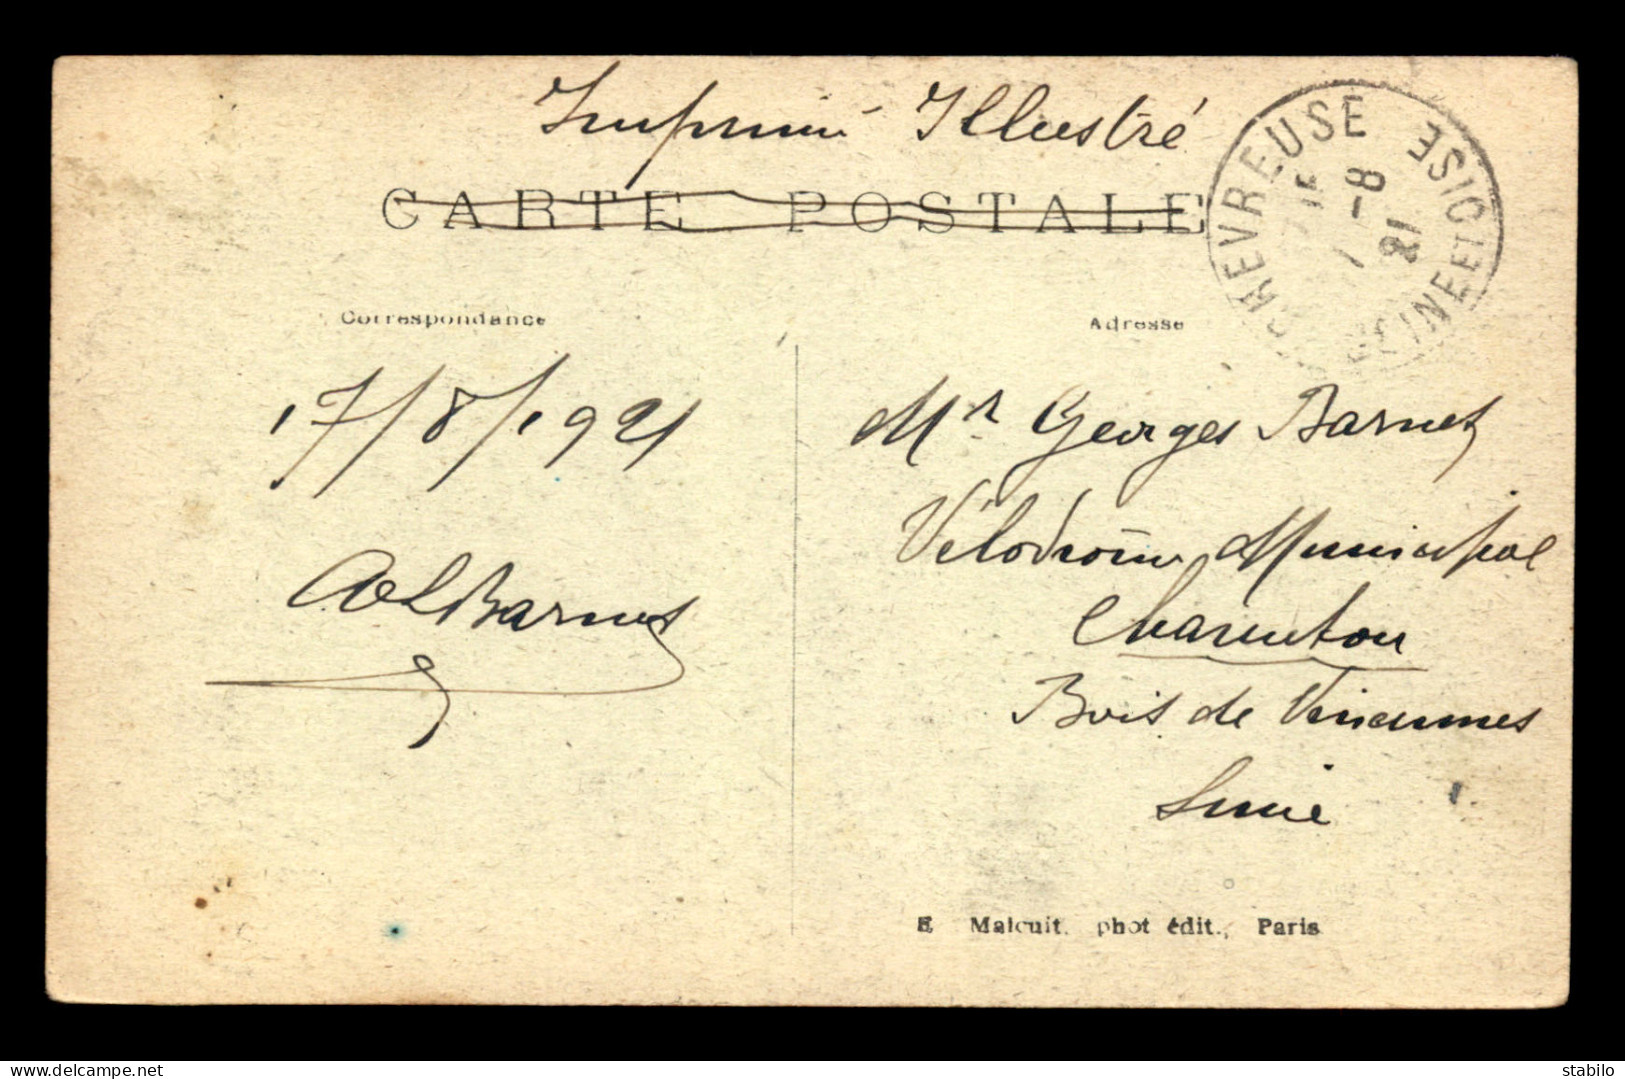 Imprimé Illustré
CARTE POSTALE
CHEVREUSE SEINE ET OISE
15
7-8
21
Correspondance
Adresse
17/8/1921
Barnet
Mr Georges Barnet
Vélodrome Municipal
Charenton
Bois de Vincennes
Seine
E. Malcuit. phot édit., Paris
www.delcampe.net
stabilo